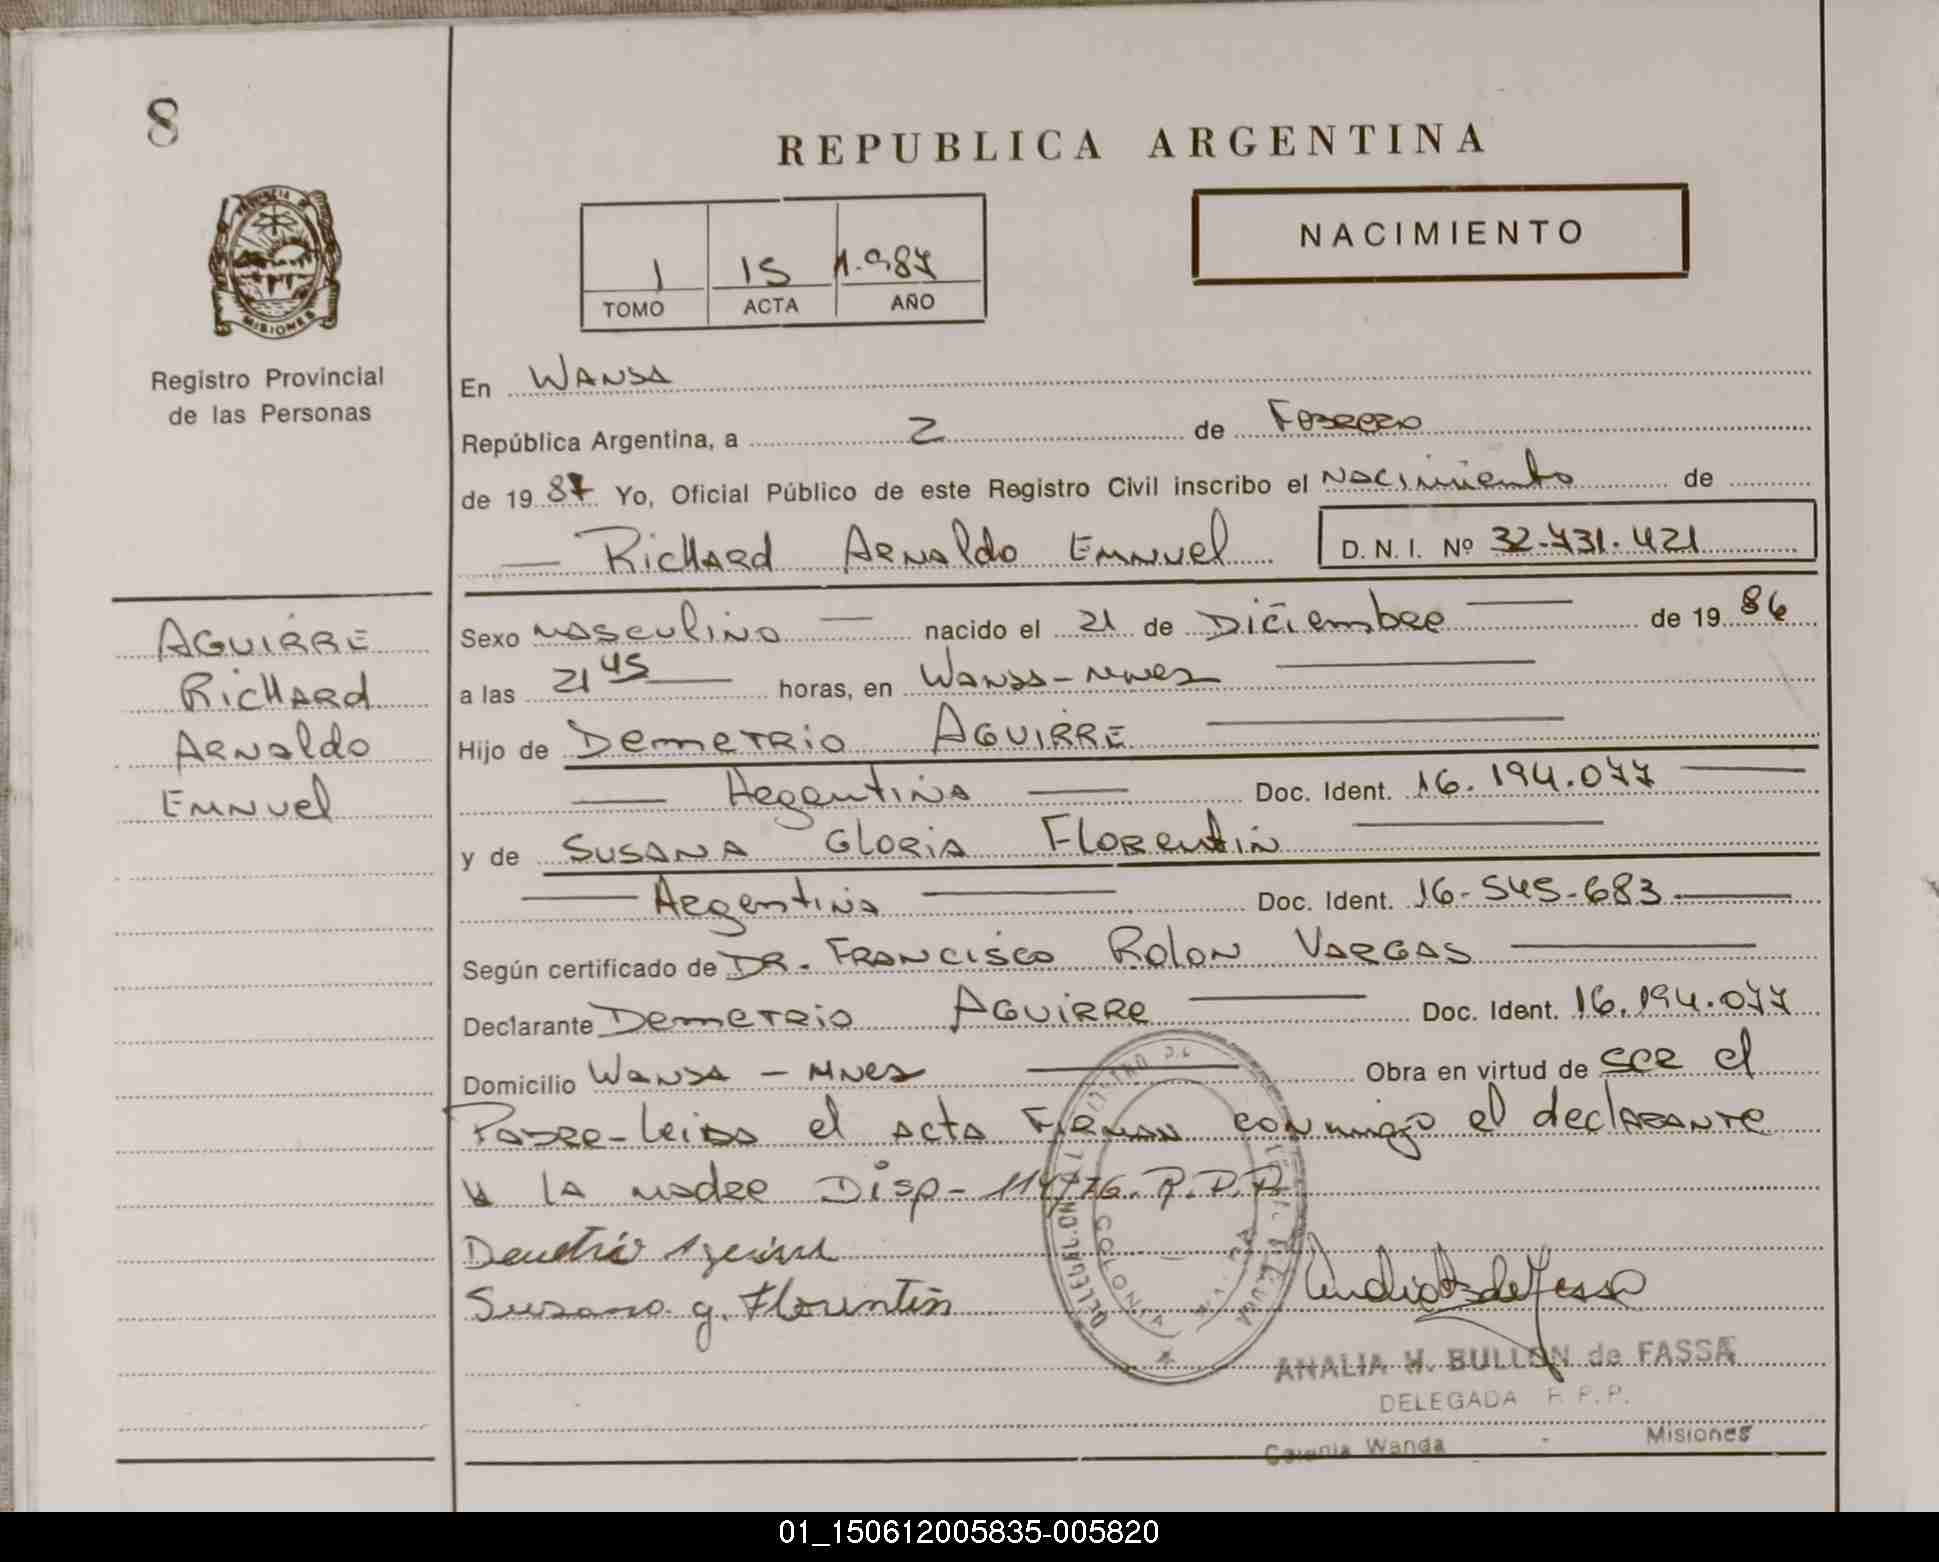 8
REPUBLICA ARGENTINA
NACIMIENTO
1 15 1.987
TOMO ACTA AÑO
MISIONES
Registro Provincial
de las Personas
En WANDA
República Argentina, a 2 de Febrero
de 19 87 Yo, Oficial Público de este Registro Civil inscribo el Nacimiento de
Richard Arnaldo Emnuel D. N. I. Nº 32.731.421
AGUIRRE
Richard
Arnaldo
Emnuel
Sexo masculino nacido el 21 de Diciembre de 19 86
a las 21 45 horas, en Wanda - Mnes
Hijo de Demetrio AGUIRRE
Argentina Doc. Ident. 16.194.077
y de SUSANA GLORIA Florentin
Argentina Doc. Ident. 16-545-683
Según certificado de DR. FRANCISCO Rolon VARGAS
Declarante Demetrio AGUIRRE Doc. Ident. 16.194.077
Domicilio Wanda - Mnes Obra en virtud de ser el
Padre - leida el acta Firman conmigo el declarante
y la madre Disp - 114/76. R.P.P.
Demetrio Aguirre
Susana g. Florentin
COLONIA
ANALIA H. BULLON de FASSA
DELEGADA R.P.P.
Colonia Wanda - Misiones
01_150612005835-005820